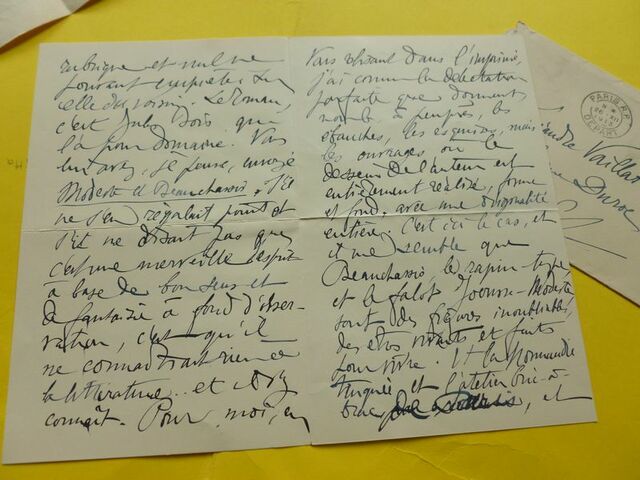 rubrique et nul ne
pouvant empiéter sur
celle du voisin. Le roman,
c'est Jules Bois qui
l'a pour domaine. Vous
lui avez, je pense, envoyé
Modeste et Beauchassis. S'il
ne s'en régalait point et
s'il ne disait pas que
c'est une merveille d'esprit
à base de bon sens et
de fantaisie à fond d'obser-
vation, c'est qu'il
ne connaîtrait rien à
la littérature... et il s'y
connaît. Pour moi, en
Vous lisant dans l'imprimé,
j'ai connu la délectation
parfaite que donnent
non les à peu près, les
ébauches, les esquisses, mais
les ouvrages où le
dessein de l'auteur est
entièrement réalisé, forme
et fond, avec une originalité
entière. C'est ici le cas, et
il me semble que
Beauchassis le rapin typé,
et le falot Modeste
sont des figures inoubliables,
des êtres vivants et faits
pour vivre. Et la Normandie
et l'atelier bric-à-
brac, et
PARIS
DEPART
Vaillat
Duroc